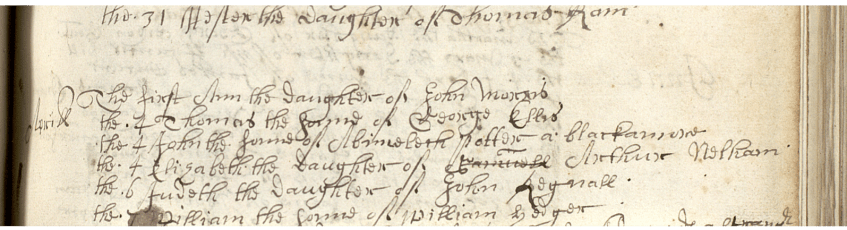 the 31 Hester the daughter of Thomas Ram
Aprill The first Ann the daughter of John Morris
the 2 Thomas the sonne of George Ellis
the 4 John the sonne of Abimeleth Potter a blackamore
the 4 Elizabeth the daughter of Samuell Arthur Nelham
the 6 Judeth the daughter of John Regnall
the 7 William the sonne of William Hedger